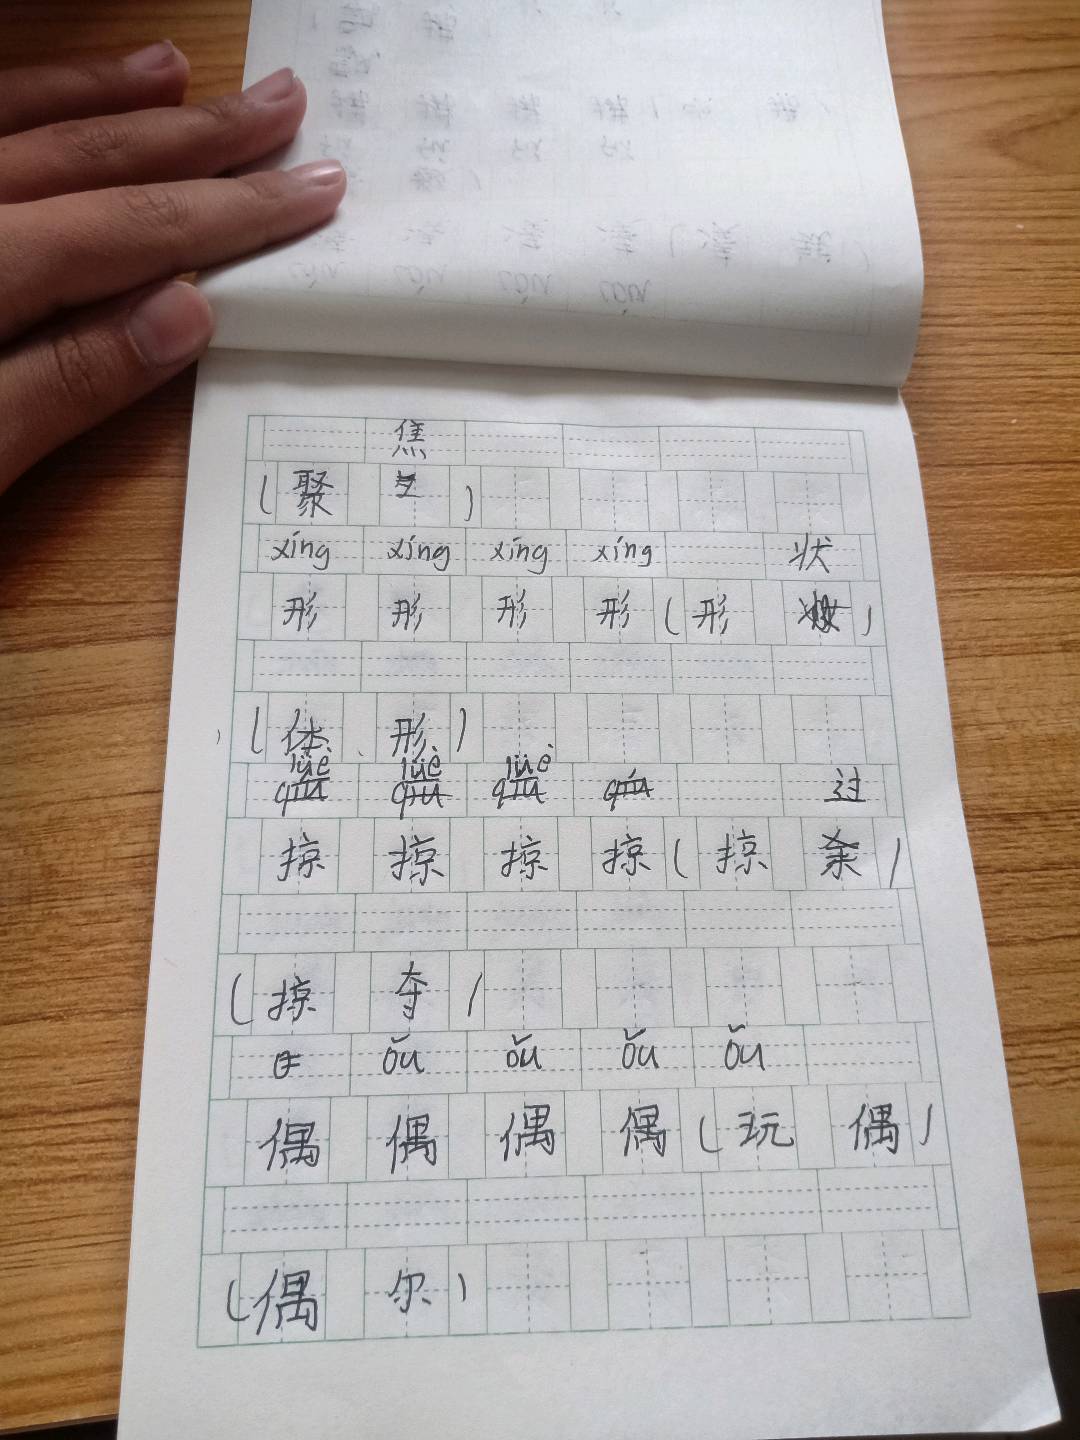 焦
(聚)
xíng xíng xíng xíng 状
形 形 形 形(形)
(体 形)
lüè lüè lüè
qiu qiu qiu qiu 过
掠 掠 掠 掠(掠)
(掠 夺)
ǒu ǒu ǒu ǒu
偶 偶 偶 偶(玩 偶)
(偶 尔)